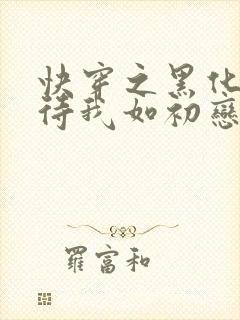 快穿之黑化
待我如初戀
羅富和